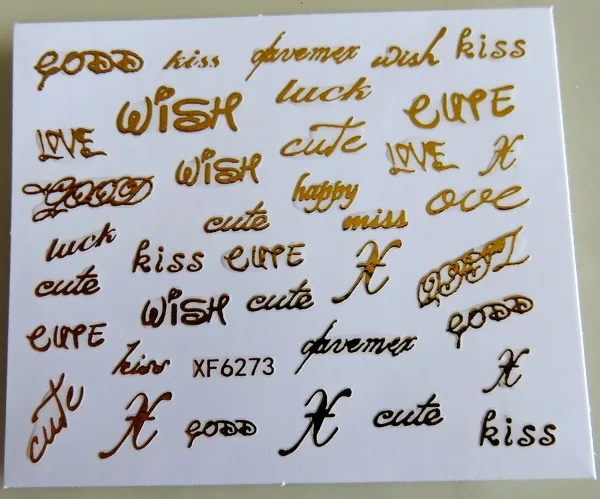 GOOD kiss davemex wish kiss
WISH luck CUTE
LOVE WISH cute LOVE X
GOOD happy ove
luck cute miss
cute kiss CUTE X
WISH cute GOOD
CUTE kiss XF6273 davemex X
cute X GOOD X cute kiss